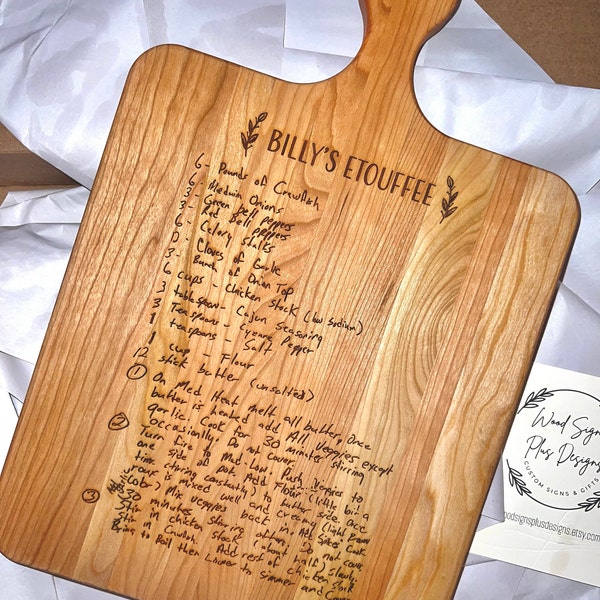 BILLY'S ETOUFFEE
6 - Pounds of Crawfish
6 - Medium Onions
3 - Green bell peppers
3 - Red Bell peppers
6 - Celery stalks
- Cloves of Garlic
3 - Bunch of Onion Top
6 cups - Chicken stock (low sodium)
3 tablespoons - Cajun Seasoning
3 Teaspoons - Cyenne Pepper
1 teaspoons - Salt
1 cup - Flour
12 stick butter (unsalted)
① On Med Heat melt all butter, once
butter is heated add All veggies except
garlic. Cook for 30 minutes stirring
occasionally. Do not cover
② Turn fire to Med-Low. Push veggies to
one side of pot. Add Flour (little bit a
time stirring constantly) to butter side. Once
flour is mixed well and creamy (light brown
Color) Mix veggies back in, All Spices. Cook
30 minutes stirring often. Do not cover
③ stir in chicken stock (about half) slowly.
stir in Crawfish. Add rest of chicken stock
bring to Boil then Lower to simmer and Cover
Wood Signs
Plus Designs
CUSTOM SIGNS & GIFTS
oodsignsplusdesigns.etsy.com